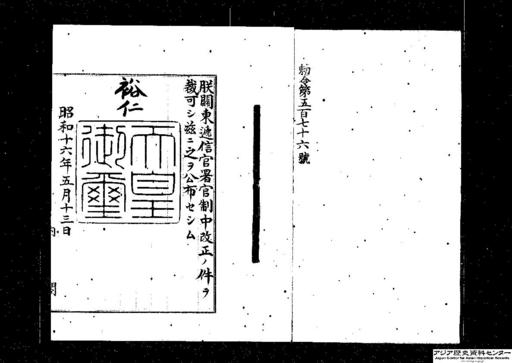 勅令第五百七十六號
朕關東遞信官署官制中改正ノ件ヲ
裁可シ茲ニ之ヲ公布セシム
裕仁
天皇御璽
昭和十六年五月十三日
内閣
アジア歴史資料センター
Japan Center for Asian Historical Records